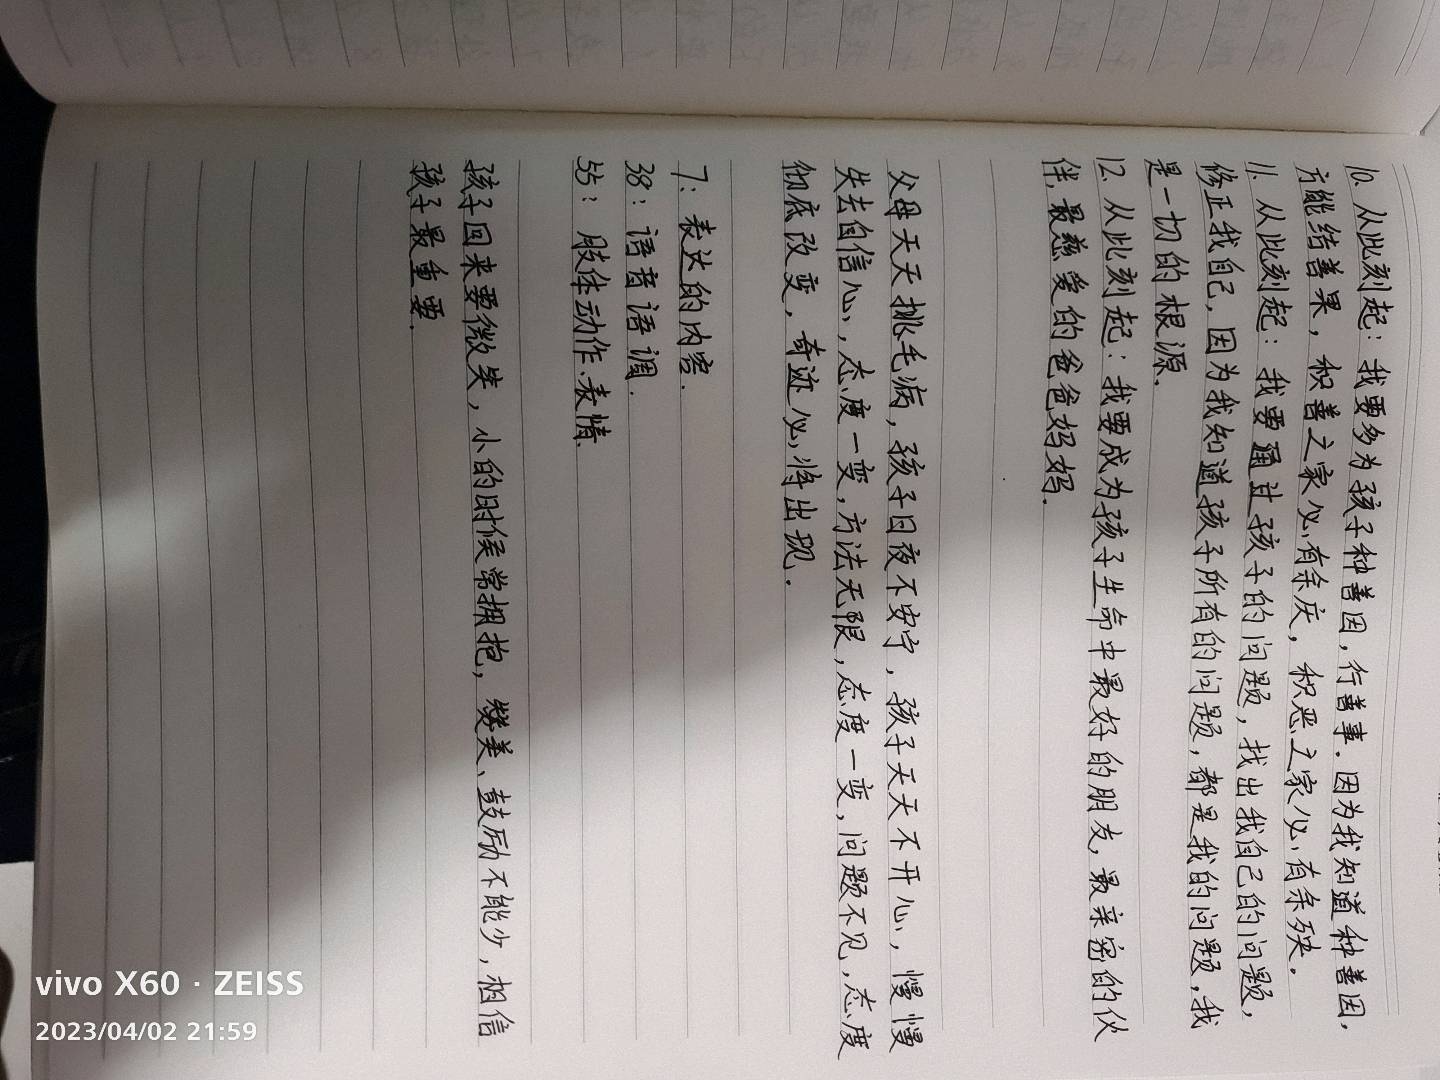 10. 从此刻起：我要多为孩子种善因，行善事．因为我知道种善因，
方能结善果，积善之家必有余庆，积恶之家必有余殃．
11. 从此刻起：我要通过孩子的问题，找出我自己的问题，
修正我自己，因为我知道孩子所有的问题，都是我的问题，我
是一切的根源．
12. 从此刻起：我要成为孩子生命中最好的朋友，最亲密的伙
伴，最慈爱的爸爸妈妈．
父母天天挑毛病，孩子日夜不安宁，孩子天天不开心，慢慢
失去自信心，态度一变，方法无限，态度一变，问题不见，态度
彻底改变，奇迹必将出现．
7：表达的内容．
38：语音语调．
55：肢体动作、表情．
孩子回来要微笑，小的时候常拥抱，赞美、鼓励不能少，相信
孩子最重要．
vivo X60 · ZEISS
2023/04/02 21:59